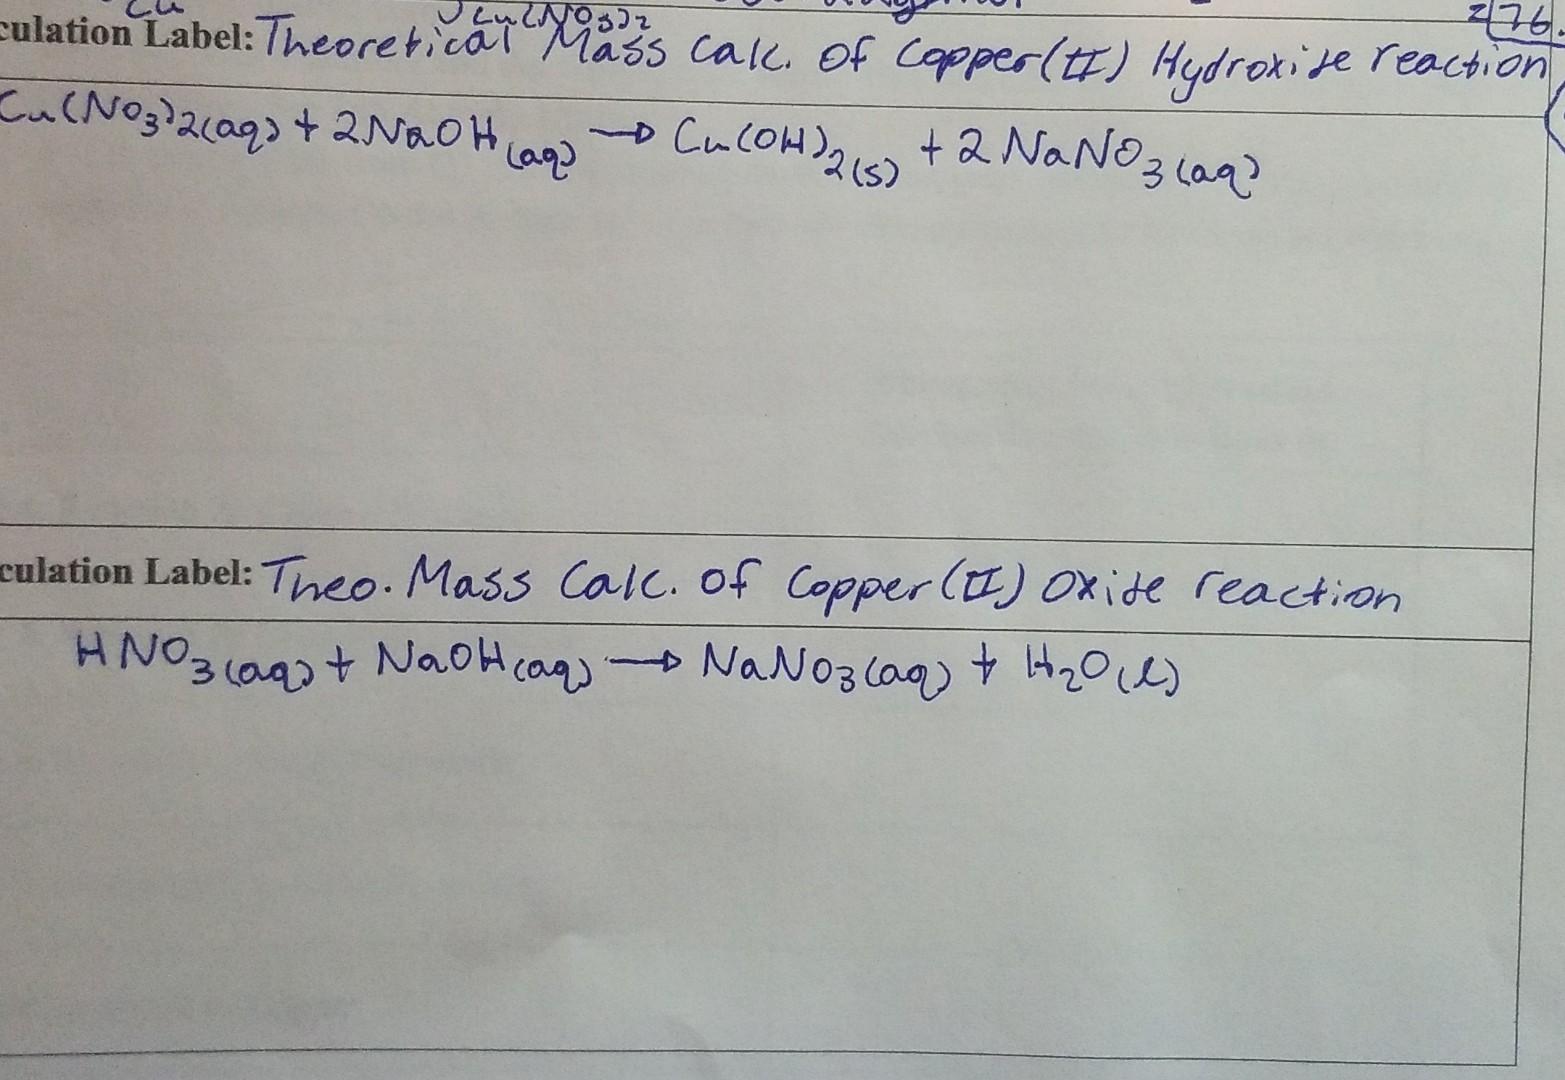 Cu
Cu(NO3)2
276.
culation Label: Theoretical Mass Calc. Of Copper(II) Hydroxide reaction
Cu(NO3)2(aq) + 2NaOH(aq) → Cu(OH)2(s) + 2NaNO3(aq)
culation Label: Theo. Mass Calc. Of Copper(II) Oxide reaction
HNO3(aq) + NaOH(aq) → NaNO3(aq) + H2O(l)